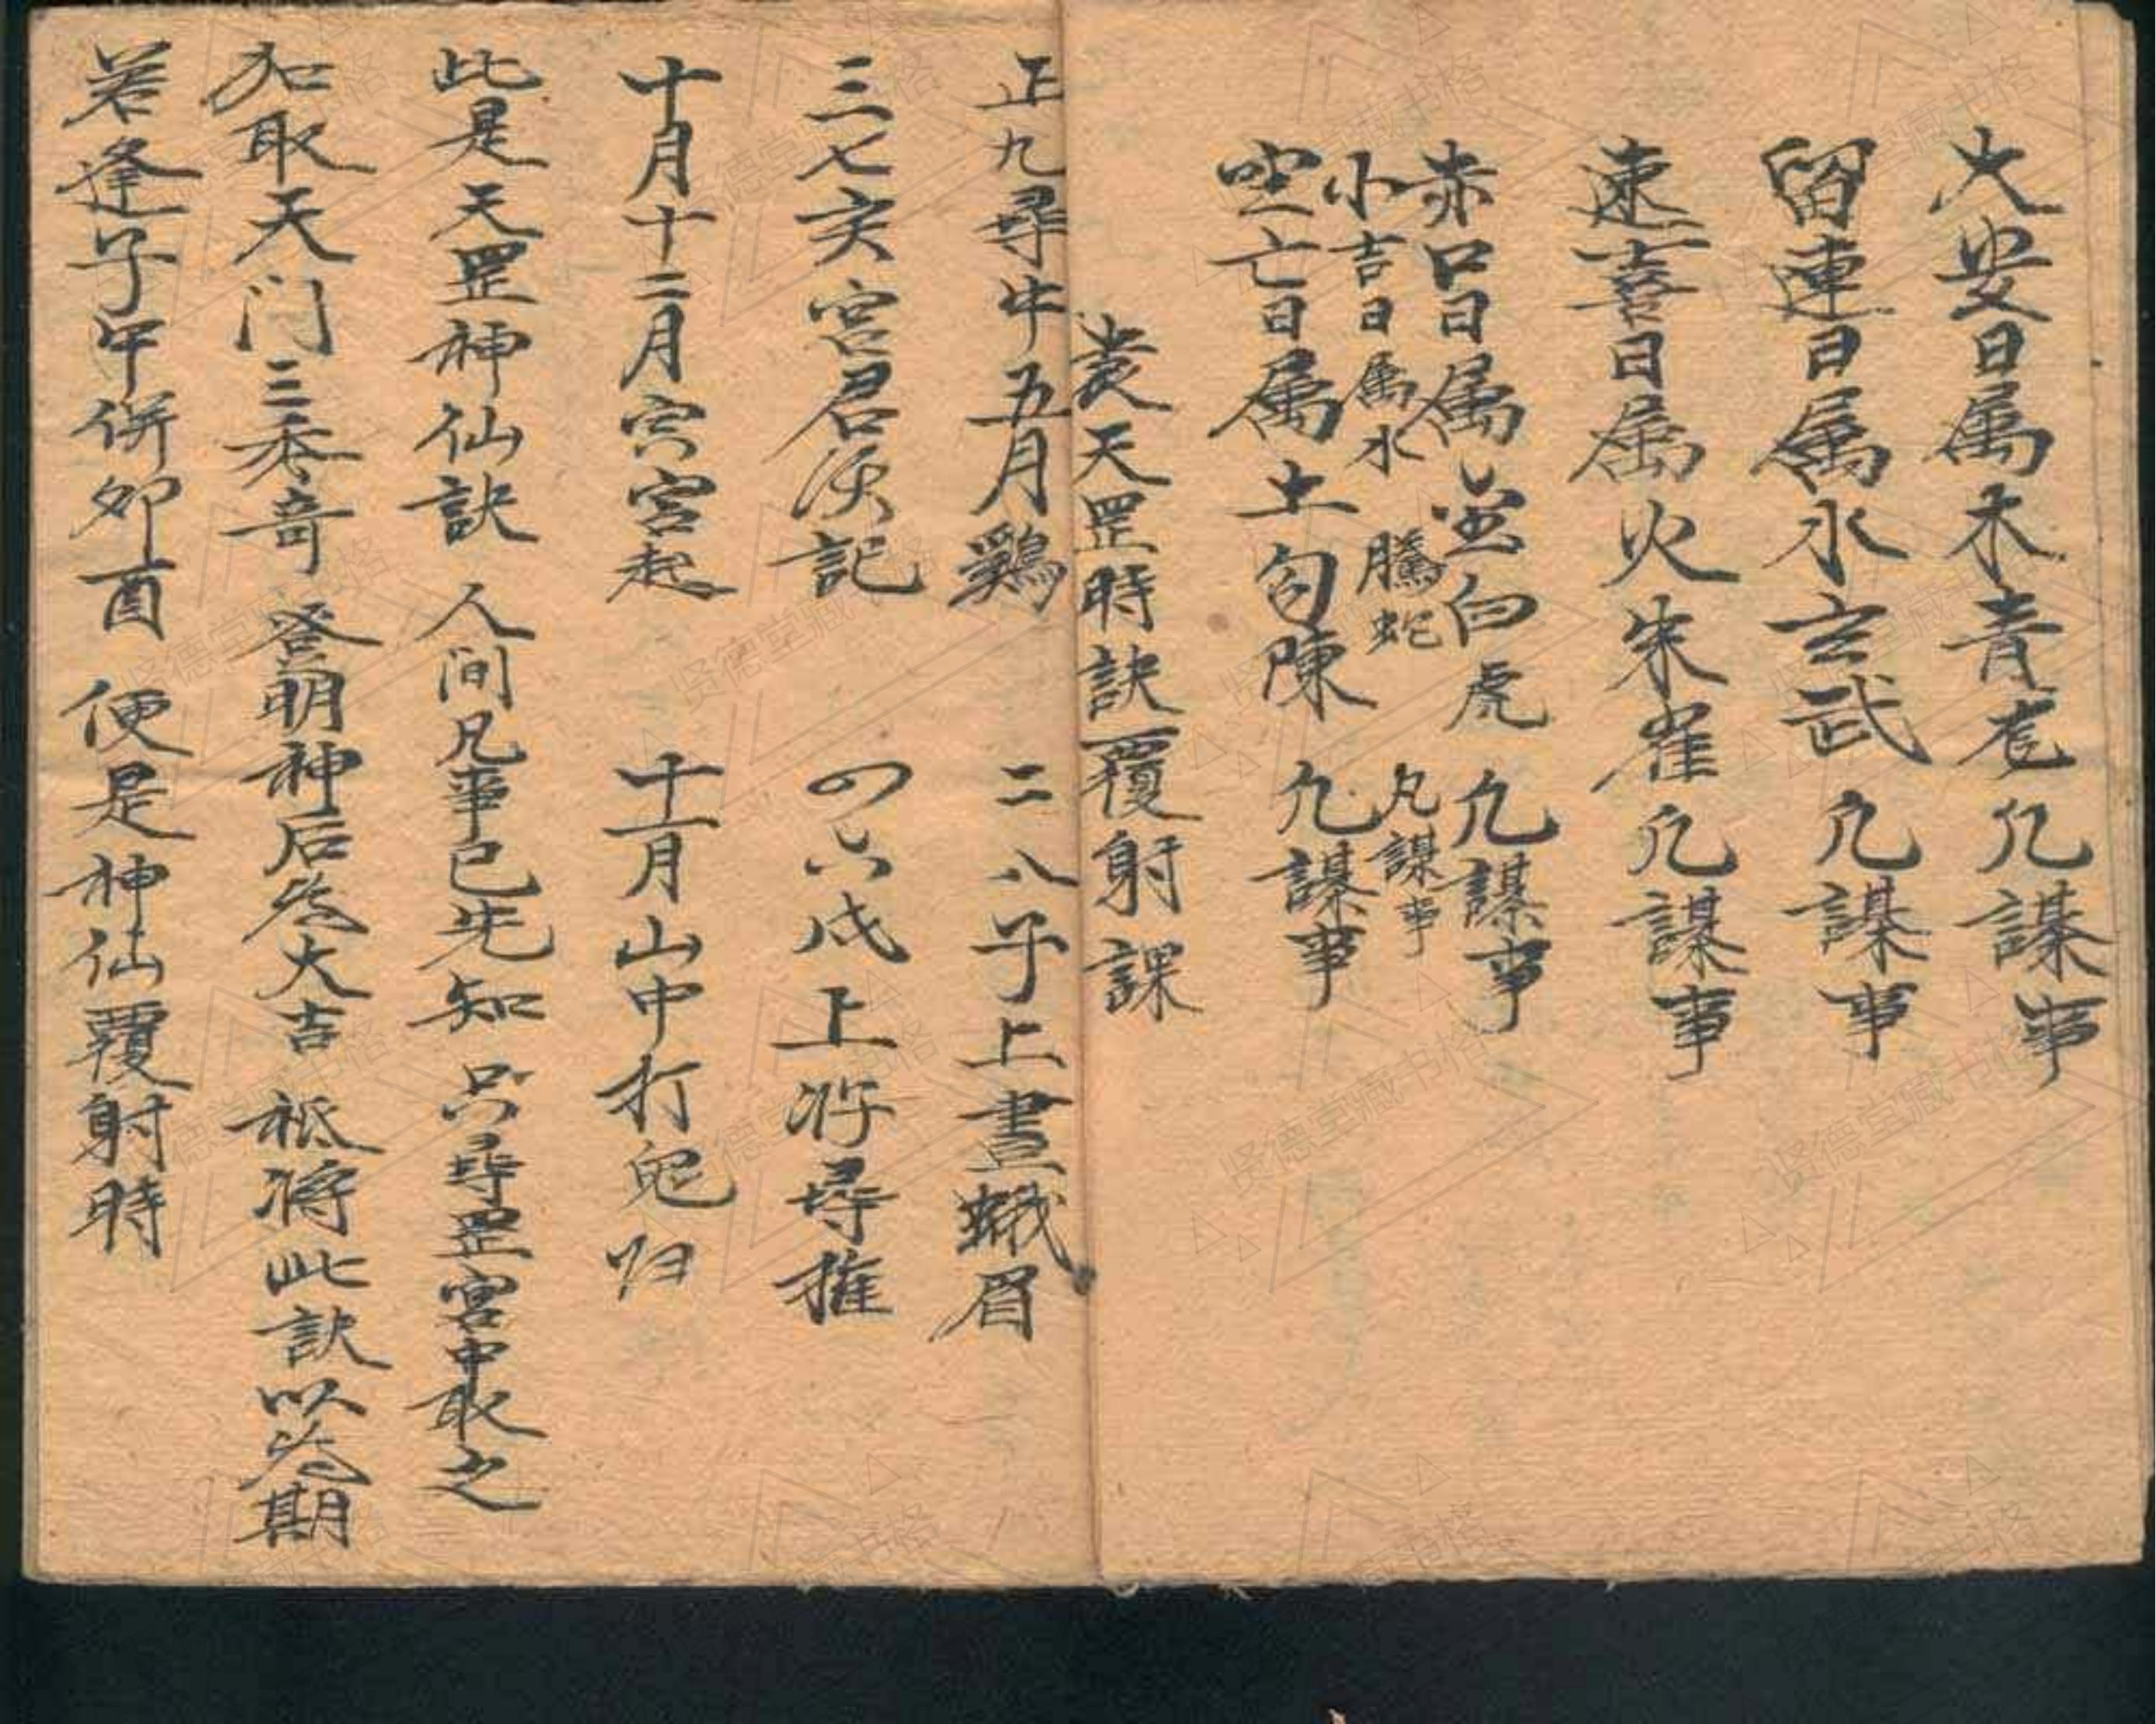 大安日属木青龙 凢謀事
畄連日属水玄武 凢謀事
速喜日属火朱雀 凢謀事
赤口日属金白虎 凢謀事
小吉日属水 騰蛇 凢謀事
空亡日属土勾陳 凢謀事
天罡時訣覆射課
正九尋牛五月鷄 二八子上畫蛾眉
三七亥宮君須記 四六戌上将尋推
十月十二月宮起 十一月山中打兎归
此是天罡神仙訣 人间凡事已先知 只尋罡宮中取之
加取天门三奇 登明神后為大吉 祗将此訣以為期
若逢子午併卯酉 便是神仙覆射時
贤德堂藏书格